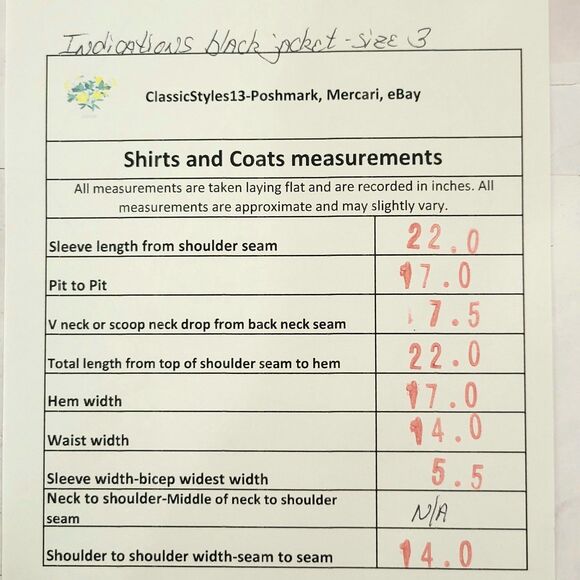 Indications black jacket - size 3
ClassicStyles13-Poshmark, Mercari, eBay
Shirts and Coats measurements
All measurements are taken laying flat and are recorded in inches. All
measurements are approximate and may slightly vary.
Sleeve length from shoulder seam 22.0
Pit to Pit 17.0
V neck or scoop neck drop from back neck seam 7.5
Total length from top of shoulder seam to hem 22.0
Hem width 17.0
Waist width 14.0
Sleeve width-bicep widest width 5.5
Neck to shoulder-Middle of neck to shoulder
seam N/A
Shoulder to shoulder width-seam to seam 14.0